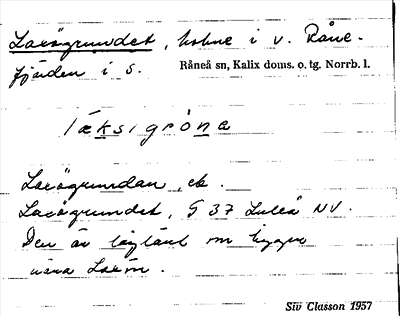 Laxögrundet, holme i v. Råne-
fjärden i S. Råneå sn, Kalix doms. o. tg. Norrb. l.
Laxögrundan, ek.
Laxögrundet, G 37 Luleå NV.
Den är låglänt om ligger
nära Laxön.
Siv Classon 1957